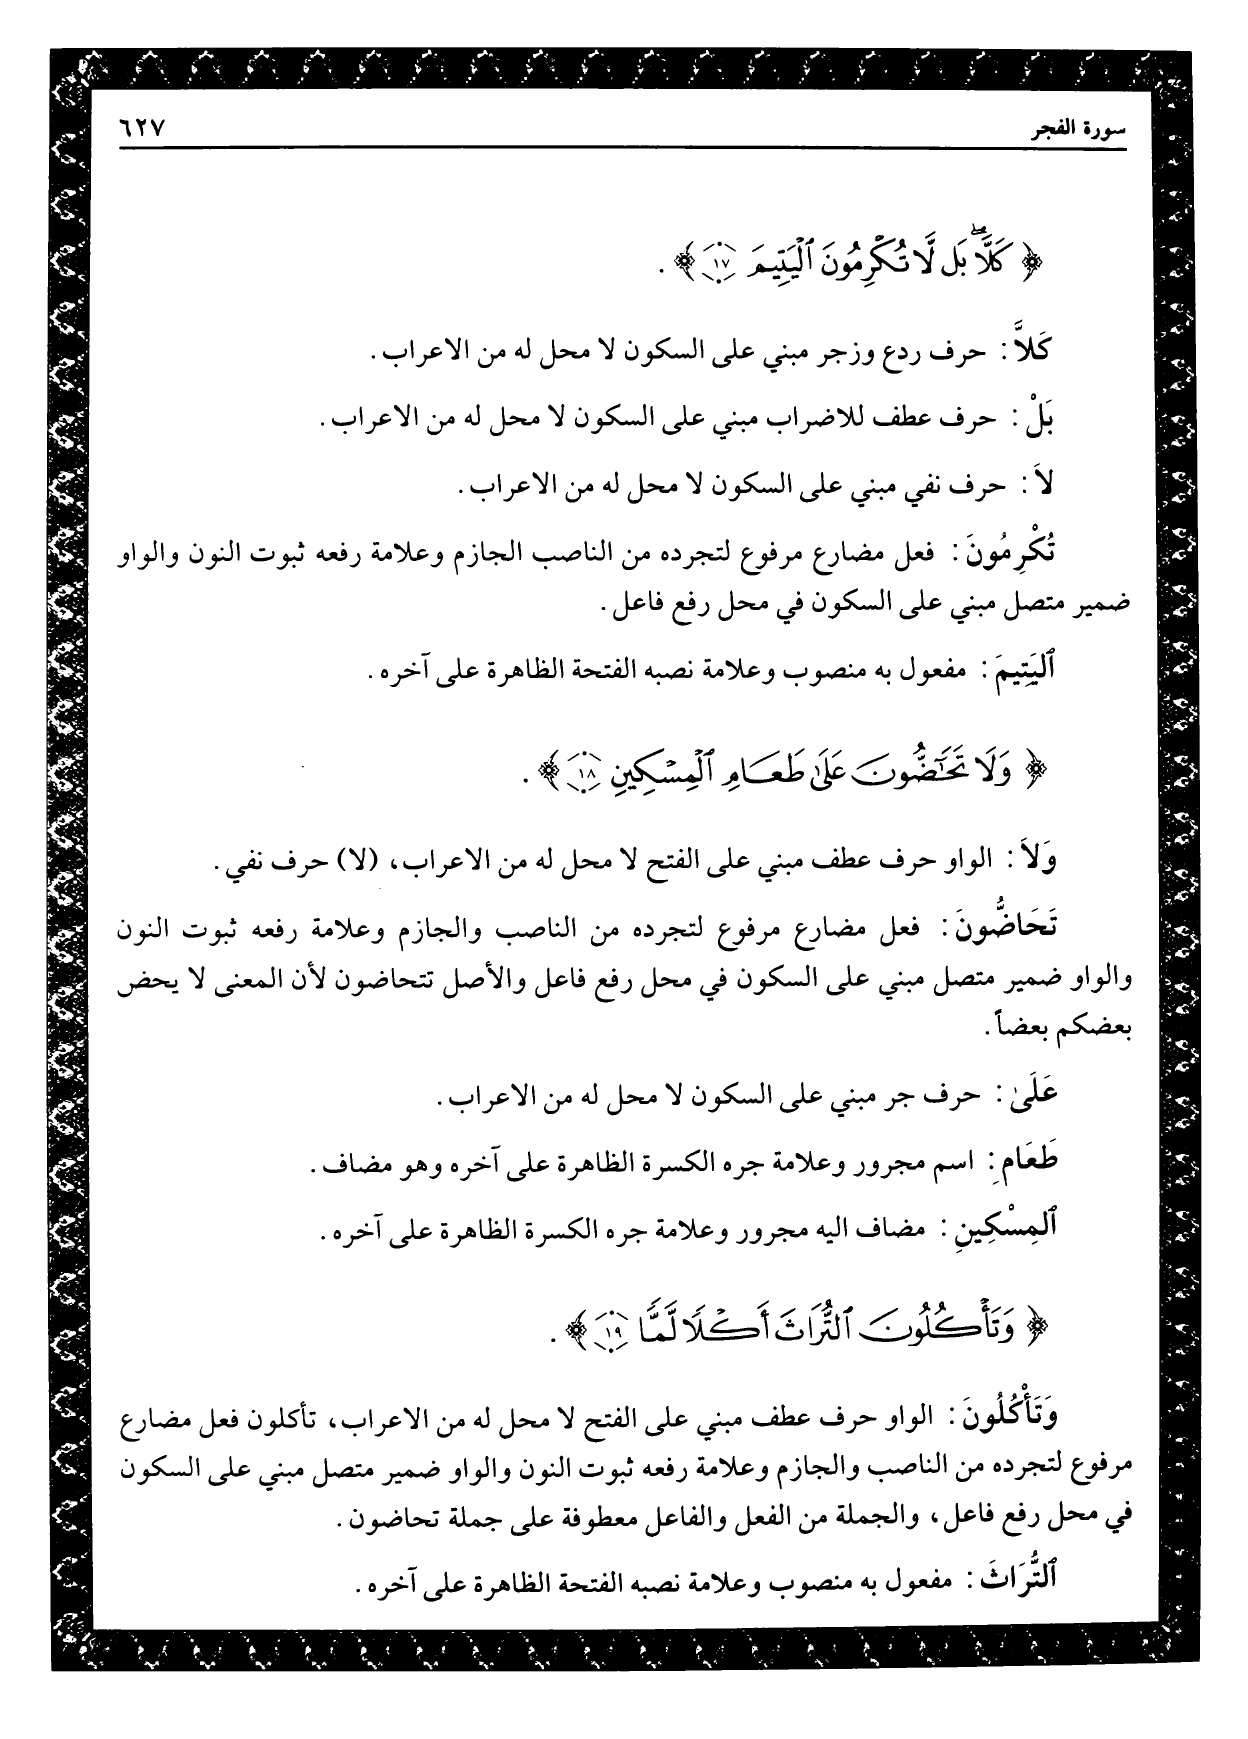 سورة الفجر ٦٢٧
﴿ كَلَّاۖ بَل لَّا تُكْرِمُونَ ٱلْيَتِيمَ ١٧ ﴾ .
كَلاَّ : حرف ردع وزجر مبني على السكون لا محل له من الاعراب .
بَلْ : حرف عطف للاضراب مبني على السكون لا محل له من الاعراب .
لاَ : حرف نفي مبني على السكون لا محل له من الاعراب .
تُكْرِمُونَ : فعل مضارع مرفوع لتجرده من الناصب الجازم وعلامة رفعه ثبوت النون والواو
ضمير متصل مبني على السكون في محل رفع فاعل .
ٱليَتِيمَ : مفعول به منصوب وعلامة نصبه الفتحة الظاهرة على آخره .
﴿ وَلَا تَحَٰٓضُّونَ عَلَىٰ طَعَامِ ٱلْمِسْكِينِ ١٨ ﴾ .
وَلاَ : الواو حرف عطف مبني على الفتح لا محل له من الاعراب، (لا) حرف نفي .
تَحَاضُّونَ : فعل مضارع مرفوع لتجرده من الناصب والجازم وعلامة رفعه ثبوت النون
والواو ضمير متصل مبني على السكون في محل رفع فاعل والأصل تتحاضون لأن المعنى لا يحض
بعضكم بعضاً .
عَلَىٰ : حرف جر مبني على السكون لا محل له من الاعراب .
طَعَامِ : اسم مجرور وعلامة جره الكسرة الظاهرة على آخره وهو مضاف .
ٱلمِسْكِينِ : مضاف اليه مجرور وعلامة جره الكسرة الظاهرة على آخره .
﴿ وَتَأْكُلُونَ ٱلتُّرَاثَ أَكْلًا لَّمًّا ١٩ ﴾ .
وَتَأْكُلُونَ : الواو حرف عطف مبني على الفتح لا محل له من الاعراب، تأكلون فعل مضارع
مرفوع لتجرده من الناصب والجازم وعلامة رفعه ثبوت النون والواو ضمير متصل مبني على السكون
في محل رفع فاعل، والجملة من الفعل والفاعل معطوفة على جملة تحاضون .
ٱلتُّرَاثَ : مفعول به منصوب وعلامة نصبه الفتحة الظاهرة على آخره .